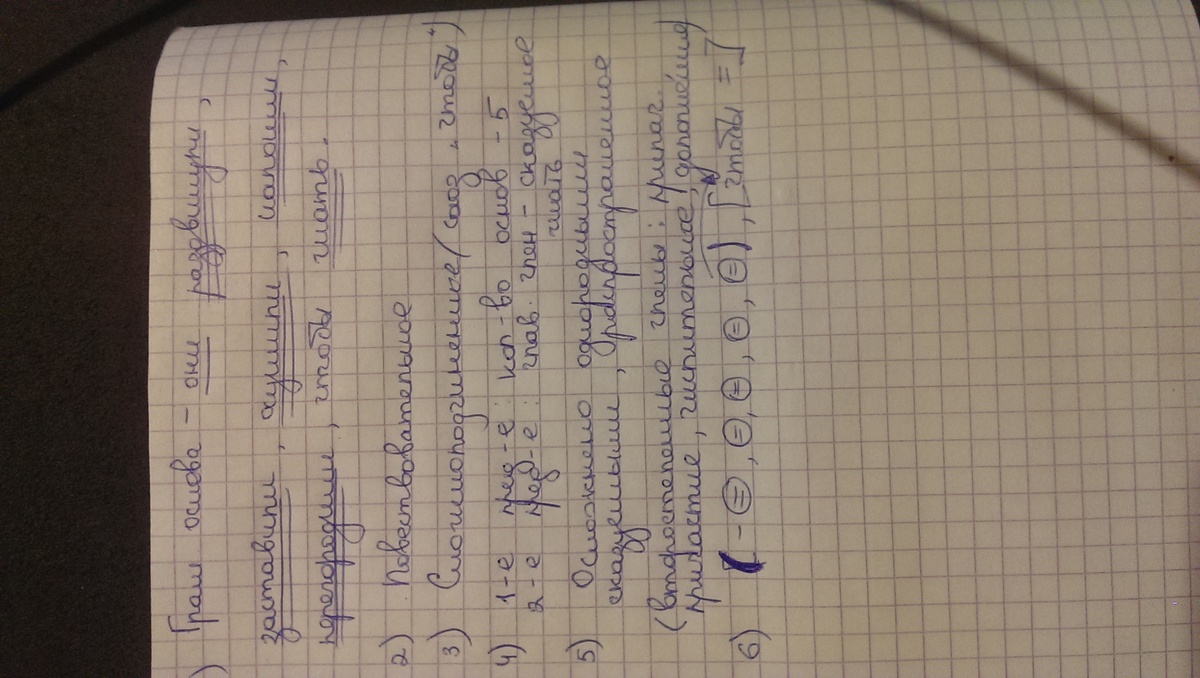 ) Грам основа - они раздвинули,
заставили, осушили, наполнили,
перегородили, чтобы гнать.
2) Повествовательное
3) Сложноподчиненное (союз „чтобы")
4) 1-е пред-е: кол-во основ - 5
2-е пред-е: глав. член - сказуемое
гнать
5) Осложнено однородными
сказуемыми, распространенное
(второстепенные члены: прилаг.
причастие, числительное, дополнение)
6) [- ⊜, ⊜, ⊜, ⊜, ⊜], [чтобы = ]